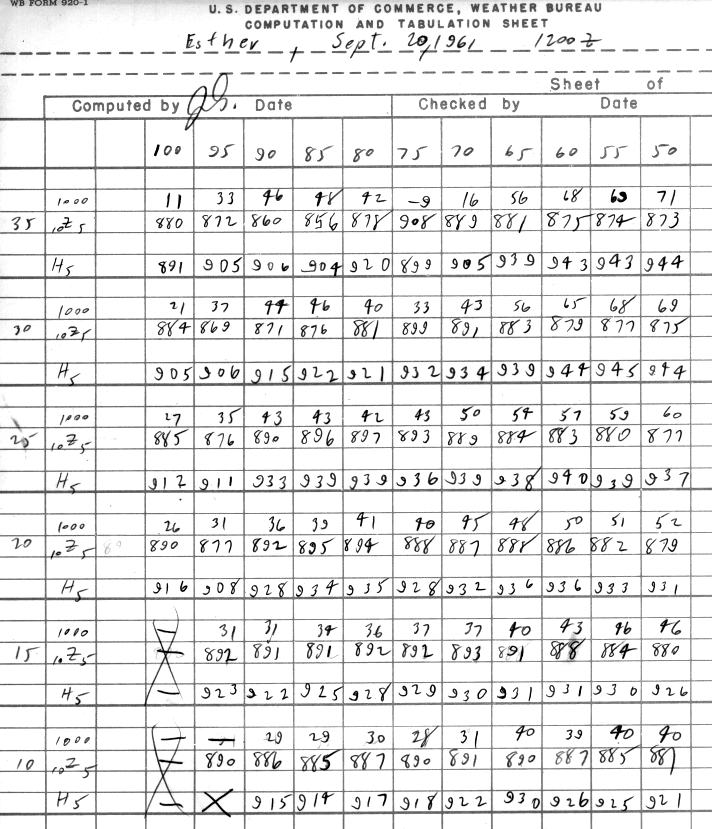 WB FORM 920-1
U. S. DEPARTMENT OF COMMERCE, WEATHER BUREAU
COMPUTATION AND TABULATION SHEET
Esther, Sept. 20, 1961 1200 Z
Sheet of
Computed by Date Checked by Date
100 95 90 85 80 75 70 65 60 55 50
1000 11 33 46 48 42 -9 16 56 68 69 71
35 10Z5 880 872 860 856 878 908 889 881 875 874 873
H5 891 905 906 904 920 899 905 939 943 943 944
1000 21 37 44 46 40 33 43 56 65 68 69
30 10Z5 884 869 871 876 881 899 891 883 879 877 875
H5 905 906 915 922 921 932 934 939 944 945 944
1000 27 35 43 43 42 43 50 54 57 59 60
25 10Z5 885 876 890 896 897 893 889 884 883 880 877
H5 912 911 933 939 939 936 939 938 940 939 937
1000 26 31 36 39 41 40 45 48 50 51 52
20 10Z5 890 877 892 895 894 888 887 888 886 882 879
H5 916 908 928 934 935 928 932 936 936 933 931
1000 — 31 31 34 36 37 37 40 43 46 46
15 10Z5 — 892 891 891 892 892 893 891 888 884 880
H5 — 923 922 925 928 929 930 931 931 930 926
1000 — — 29 29 30 28 31 40 39 40 40
10 10Z5 — 890 886 885 887 890 891 890 887 885 881
H5 — X 915 914 917 918 922 930 926 925 921